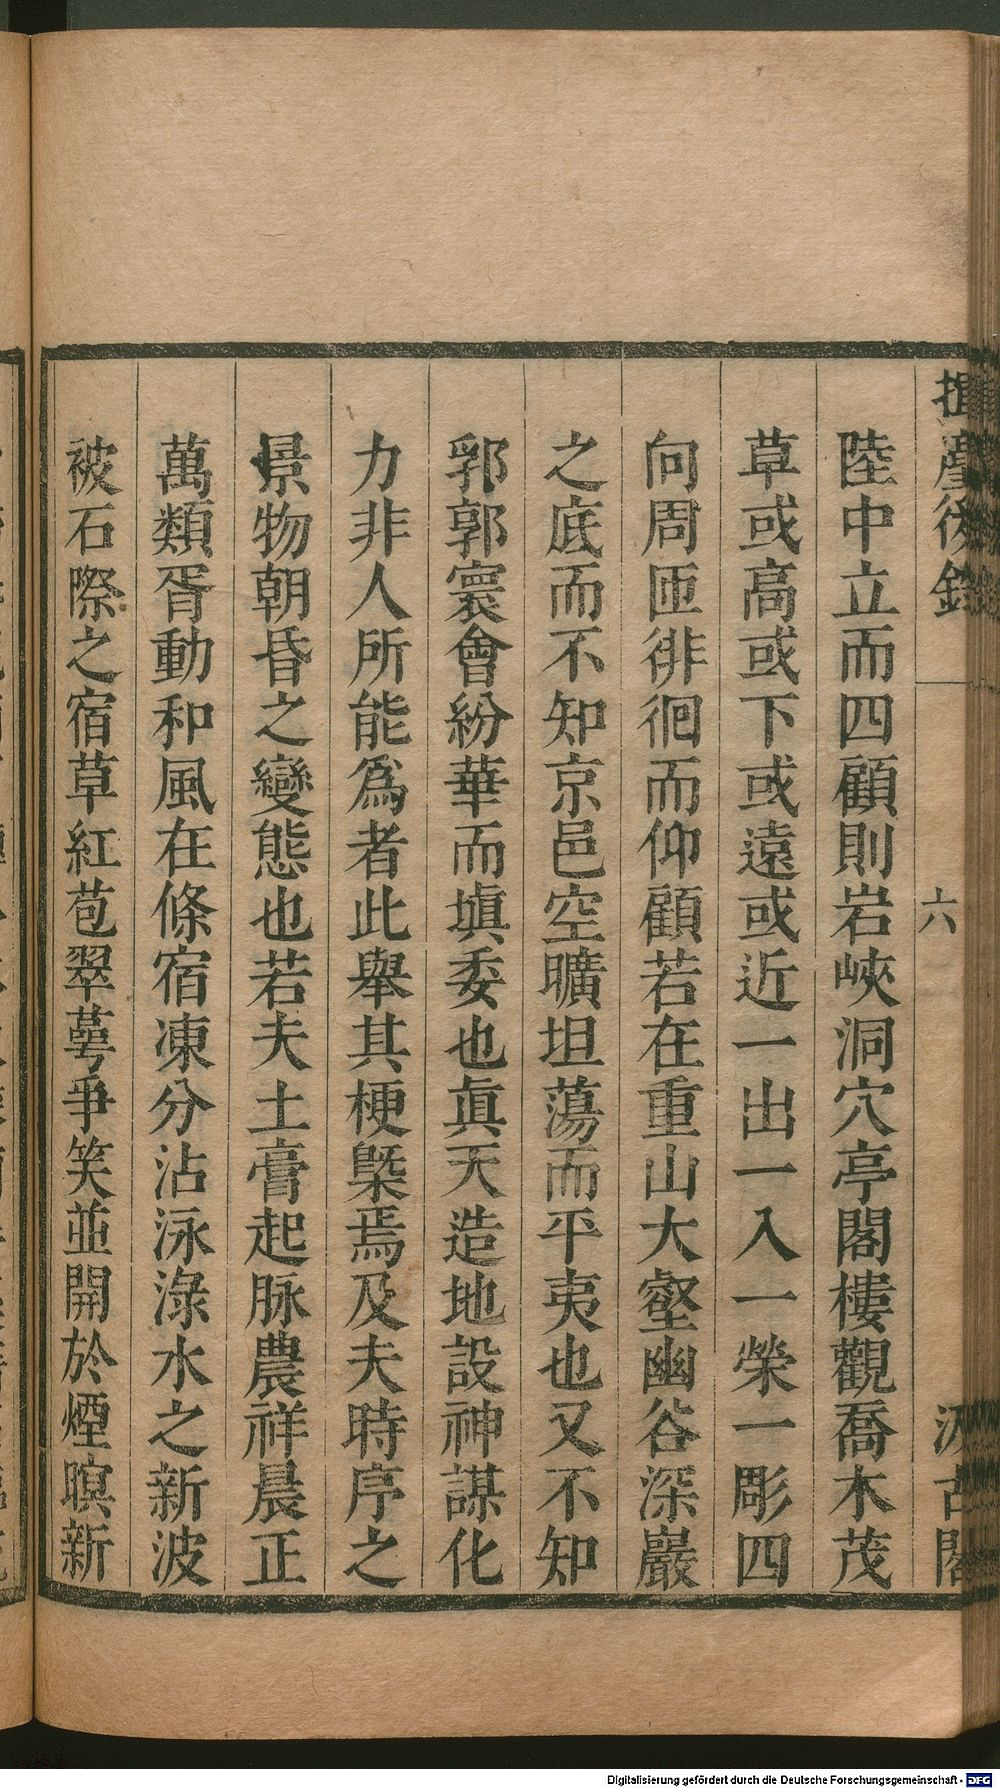 揮麈後錄
六
汲古閣
陸中立而四顧則岩峽洞穴亭閣樓觀喬木茂
草或高或下或遠或近一出一入一榮一彫四
向周匝徘徊而仰顧若在重山大壑幽谷深巖
之底而不知京邑空曠坦蕩而平夷也又不知
郛郭寰會紛華而塡委也眞天造地設神謀化
力非人所能爲者此舉其梗槩焉及夫時序之
景物朝昏之變態也若夫土膏起脉農祥晨正
萬類胥動和風在條宿凍分沾泳淥水之新波
被石際之宿草紅苞翠蕚爭笑並開於煙暝新
Digitalisierung gefördert durch die Deutsche Forschungsgemeinschaft - DFG